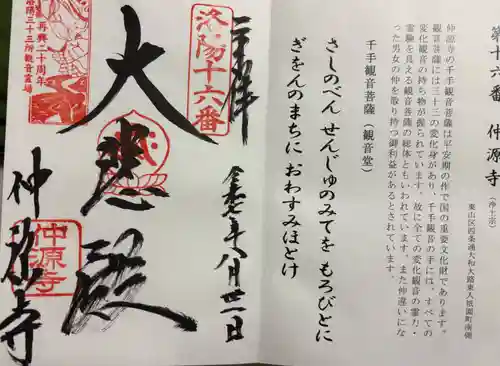 第十六番 仲源寺(浄土宗)
東山区四条通大和大路東入祇園町南側
仲源寺の千手観音菩薩は平安期の作で国の重要文化財であります。
観音菩薩には三十三の変化身があり、千手観音の手には、すべての
変化観音の持ち物が握られています。故に全ての変化観音の霊力・
霊験を具える観音菩薩の総体ともいわれています。また仲違いにな
った男女の仲を取り持つ御利益があるとされています。
千手観音菩薩(観音堂)
さしのべん せんじゅのみてを もろびとに
ぎをんのまちに おわすみほとけ
奉拝
洛陽十六番
令和七年八月廿一日
大悲殿
再興二十周年
洛陽三十三所観音霊場
仲源寺
仲源寺